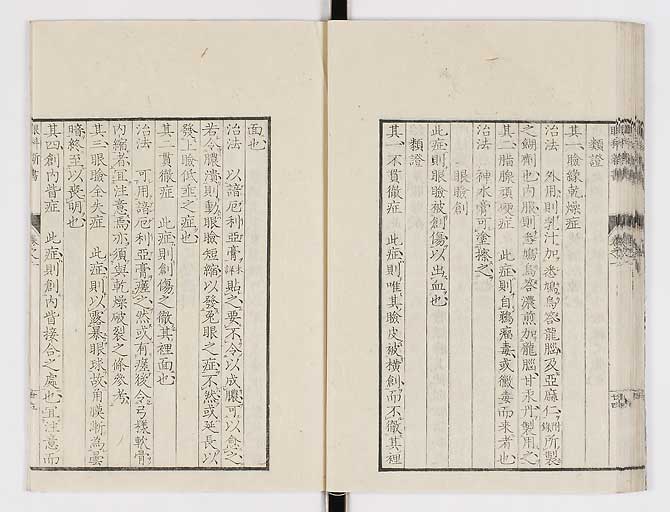 類證
其一瞼緣乾燥症
治法 外用則乳汁加悉嶋烏峇龍腦及亞麻仁所製
之糊劑也内服則嶋烏峇濃煎加龍腦甘永丹製用之
其二腊腺頑硬症 此症則自鴉瘤毒或黴毒而來者也
治法 神水膏可塗擦之
眼瞼創
此症則眼瞼被創傷以出血也
類證
其一不貫徹症 此症則唯其瞼皮被横創而不徹其裡
面也
治法 以諳厄利亞膏貼之要不令以成膿可以愈之
若令膿潰則動眼瞼短縮以發兎眼之症不然或延長以
發上瞼低垂之症也
其二貫徹症 此症則創傷之徹其裡面也
治法 可用諳厄利亞膏痙之然或有痙後令弓樣軟骨
内縮者宜注意焉亦須與乾燥破裂之條參考
其三眼瞼全失症 此症則以露暴眼球故角膜漸為曇
暗終至以喪明也
其四創内眥症 此症則創内眥接合之處也宜注意而
眼科新書